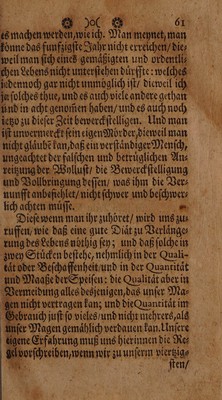 61
es machen werden, wie ich. Man meynet, man
könne das funfzigste Jahr nicht erreichen / die-
weil man sich eines gemäßigten und ordentli-
chen Lebens nicht unterstehen dürffte: welches
jedennoch gar nicht unmöglich ist / dieweil ich
ja solches thue, und es auch viele andere gethan
und in acht genom̃en haben / und es auch noch
ietzo zu dieser Zeit bewerckstelligen. Und man
ist unvermerckt sein eigen Mörder, dieweil man
nicht gläubt kan, daß ein verständiger Mensch,
ungeachtet der falschen und betrüglichen An-
reitzung der Wollust / die Bewerckstelligung
und Vollbringung dessen / was ihm die Ver-
nunfft anbefiehlet / nicht schwer und beschwer-
lich achten müsse.
Diese wenn man ihr zuhöret / wird uns zu-
ruffen, wie daß eine gute Diät zu Verlänge-
rung des Lebens nöthig sey; und daß solche in
zwey Stücken bestehe, nehmlich in der Quali-
tät oder Beschaffenheit / und in der Quantität
und Maaße der Speisen: die Qualität aber in
Vermeidung alles desjenigen, das unser Ma-
gen nicht vertragen kan; und die Quantität im
Gebrauch just so vieles / und nicht mehrers, als
unser Magen gemählich verdauen kan. Unsere
eigene Erfahrung muß uns hierinnen die Re-
gel vorschreiben, wenn wir zu unserm viertzig-
sten /